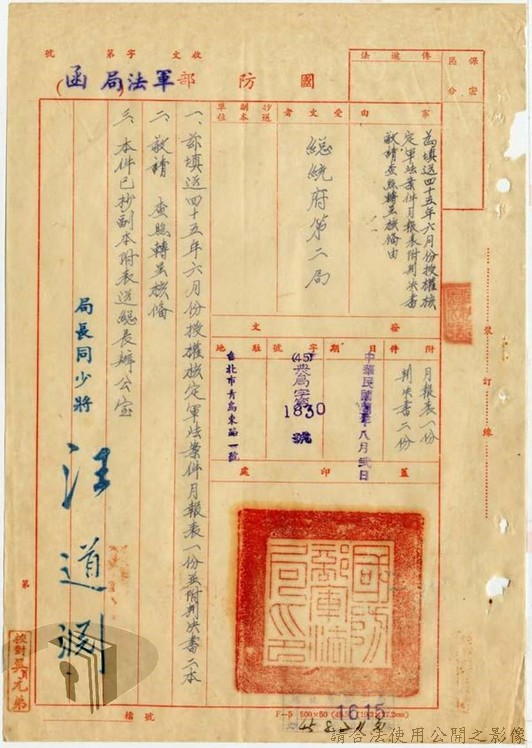 收文 字第 號
國防部軍法局(函)
保密區分
傳遞法
事由
為填送四十五年六月份授權核
定軍法案件月報表附判決書
敬請查照轉呈核備由
受文者
總統府第二局
抄送副本單位
發文
附件
月報表一份
判決書二份
日期
中華民國 年八月弍日
字號
(45)典局字第
1830
號
駐地
台北市青島東路一號
蓋印處
國防部軍法局印
一、茲填送四十五年六月份授權核定軍法案件月報表一份並附判決書二本
二、敬請 查照轉呈核備
三、本件已抄副本附表送總長辦公室
局長同少將
汪道淵
裝訂線
第
檔號
1615
請合法使用公開之影像